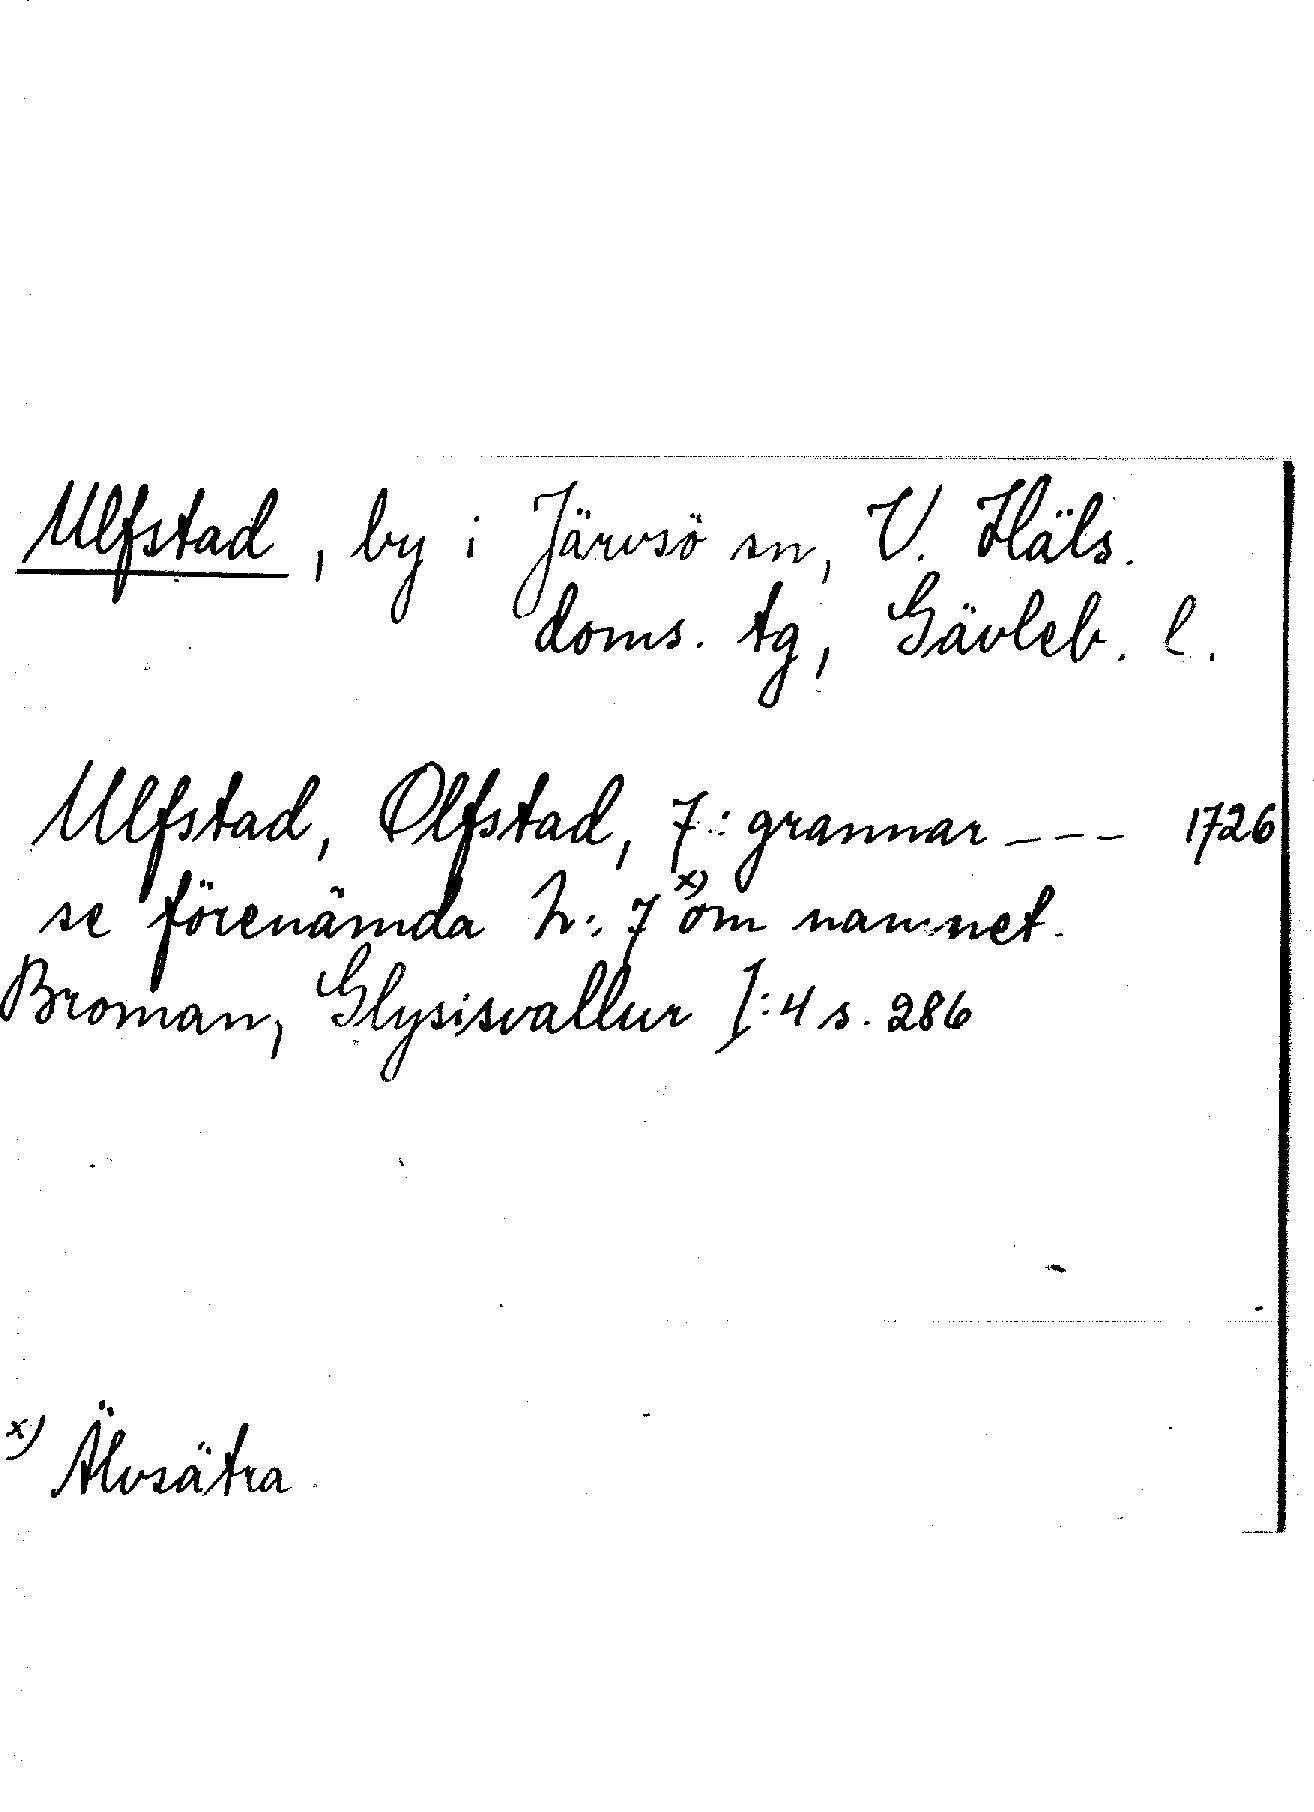 Ulfstad, by i Järvsö sn, V. Häls.
doms. tg, Gävleb. l.
Ulfstad, Olfstad, 7: grannar --- 1726
se förenämda h: 7 x) om namnet.
Broman, Glysisvallur I:4 s. 286
x) Älvsätra